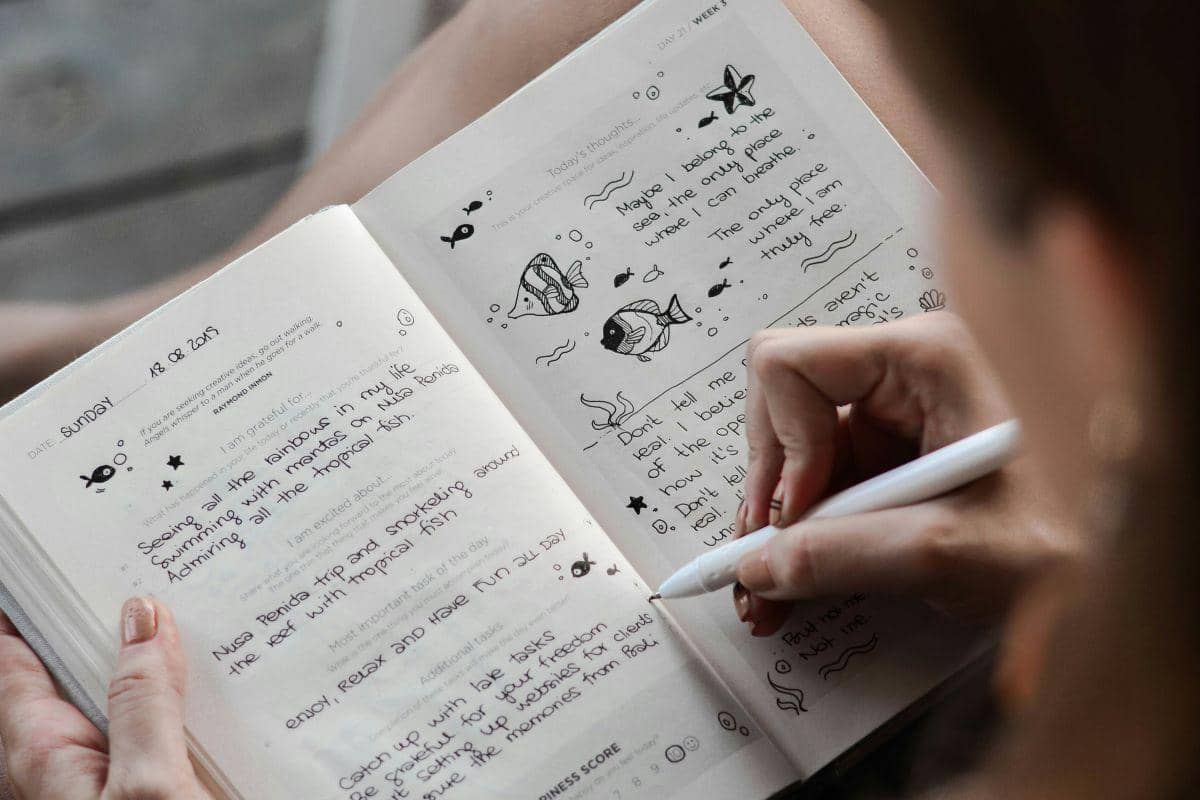 DATE SUNDAY 18.08.2019
If you are seeking creative ideas, go out walking.
Angels whisper to a man when he goes for a walk.
RAYMOND INMON
I am grateful for...
What has happened in your life today or recently that you're thankful for?
Seeing all the rainbows in my life
Swimming with mantas on Nusa Penida
Admiring all the tropical fish.
I am excited about...
Nusa Penida trip and snorkeling around
the reef with tropical fish
Most important task of the day
ENJOY, RELAX AND HAVE FUN ALL DAY
Additional tasks
Catch up with late tasks
Be grateful for your freedom
setting up websites for clients
the memories from Bali
PINESS SCORE
7 8 9 10
DAY 21 / WEEK 3
Today's thoughts...
This is your creative space for ideas, inspiration, life updates, etc.
Maybe I belong to the
sea, the only place
where I can breathe.
The only place
where I am
truly free.
aren't
magic
Don't tell me
real. I
of the
how it's
Don't tell
real.
But not me.
Not me.